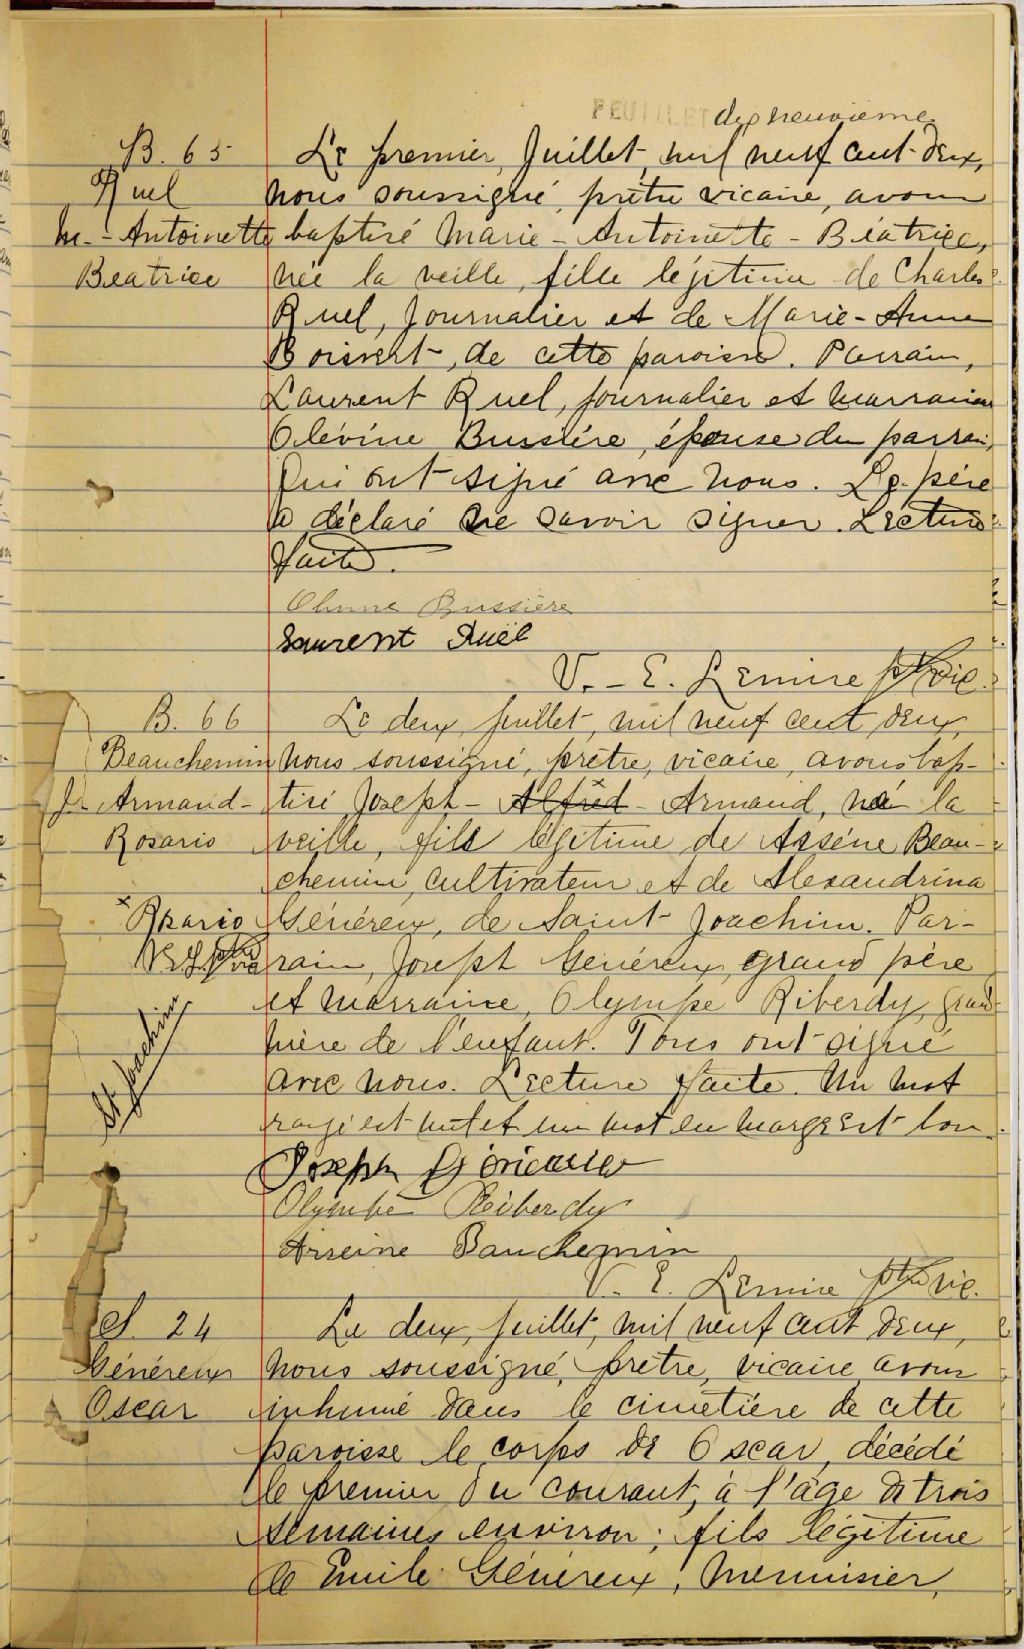 FEUILLET dix neuvième
B. 65
Ruel
M.- Antoinette
Beatrice
Le premier, Juillet, mil neuf cent deux,
nous soussigné, prêtre vicaire, avons
baptisé Marie - Antoinette - Béatrice,
née la veille, fille légitime de Charles
Ruel, Journalier et de Marie - Anne
Boisvert, de cette paroisse. Parrain,
Laurent Ruel, journalier et marraine
Olévine Bussière, épouse du parrain,
Qui ont signé avec nous. Le père
a déclaré ne savoir signer. Lecture
faite.
Bussière
Laurent Ruel
V. - E. Lemire ptre vic.
B. 66
Beauchemin
Js Armand -
Rosario
x Rosario
V.E.L. ptre vic
St Joachim
Le deux, juillet, mil neuf cent deux,
nous soussigné, prêtre, vicaire, avons bap-
tisé Joseph - Alfred - Armand, né la
veille, fils légitime de Arsène Beau-
chemin, cultivateur et de Alexandrina
Généreux, de Saint Joachim. Par-
rain, Joseph Généreux, grand père
et marraine, Olympe Riberdy, grand
mère de l'enfant. Tous ont signé
avec nous. Lecture faite. Un mot
rayé est nul et un mot en marge est bon.
Joseph Généreux
Olympe Riberdy
Arseine Bauchemin
V. E. Lemire ptre vic.
S. 24
Généreux
Oscar
Le deux, juillet, mil neuf cent deux,
nous soussigné, prêtre, vicaire, avons
inhumé dans le cimetière de cette
paroisse le corps de Oscar, décédé
le premier du courant, à l'âge de trois
semaines environ; fils légitime
de Emile Généreux, menuisier,